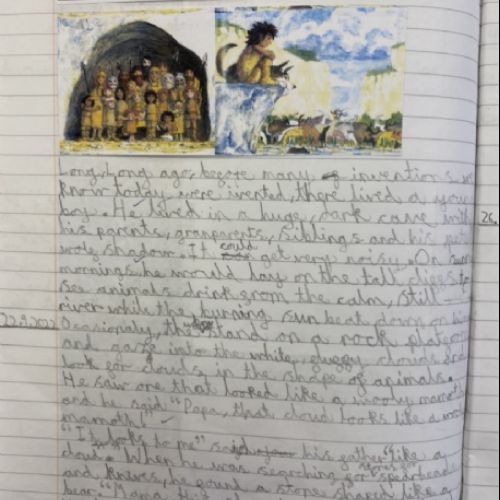 Long, Long ago, before many inventions we
know today, were ivented, there lived a young
boy. He lived in a huge, dark cave with
his parents, granparents, siblings and his pet
wolf shadow. It could get very noisy. On
mornings, he would lay on the tall cliffs to
see animals drink from the calm, still
river while the burning sun beat down on him
22.9.2022
Ocasionaly, the stand on a rock platform
and gaze into the white, fluffy clouds and
look for clouds in the shape of animals.
He saw one that looked like a wooly mamoth
and he said "Papa, that cloud looks like a wooly
mamoth!"
"It looks to me" said his father "like a
cloud." When he was searching for spearheads
and knives, he found a stone shaped like a
bear. "Mama
26.